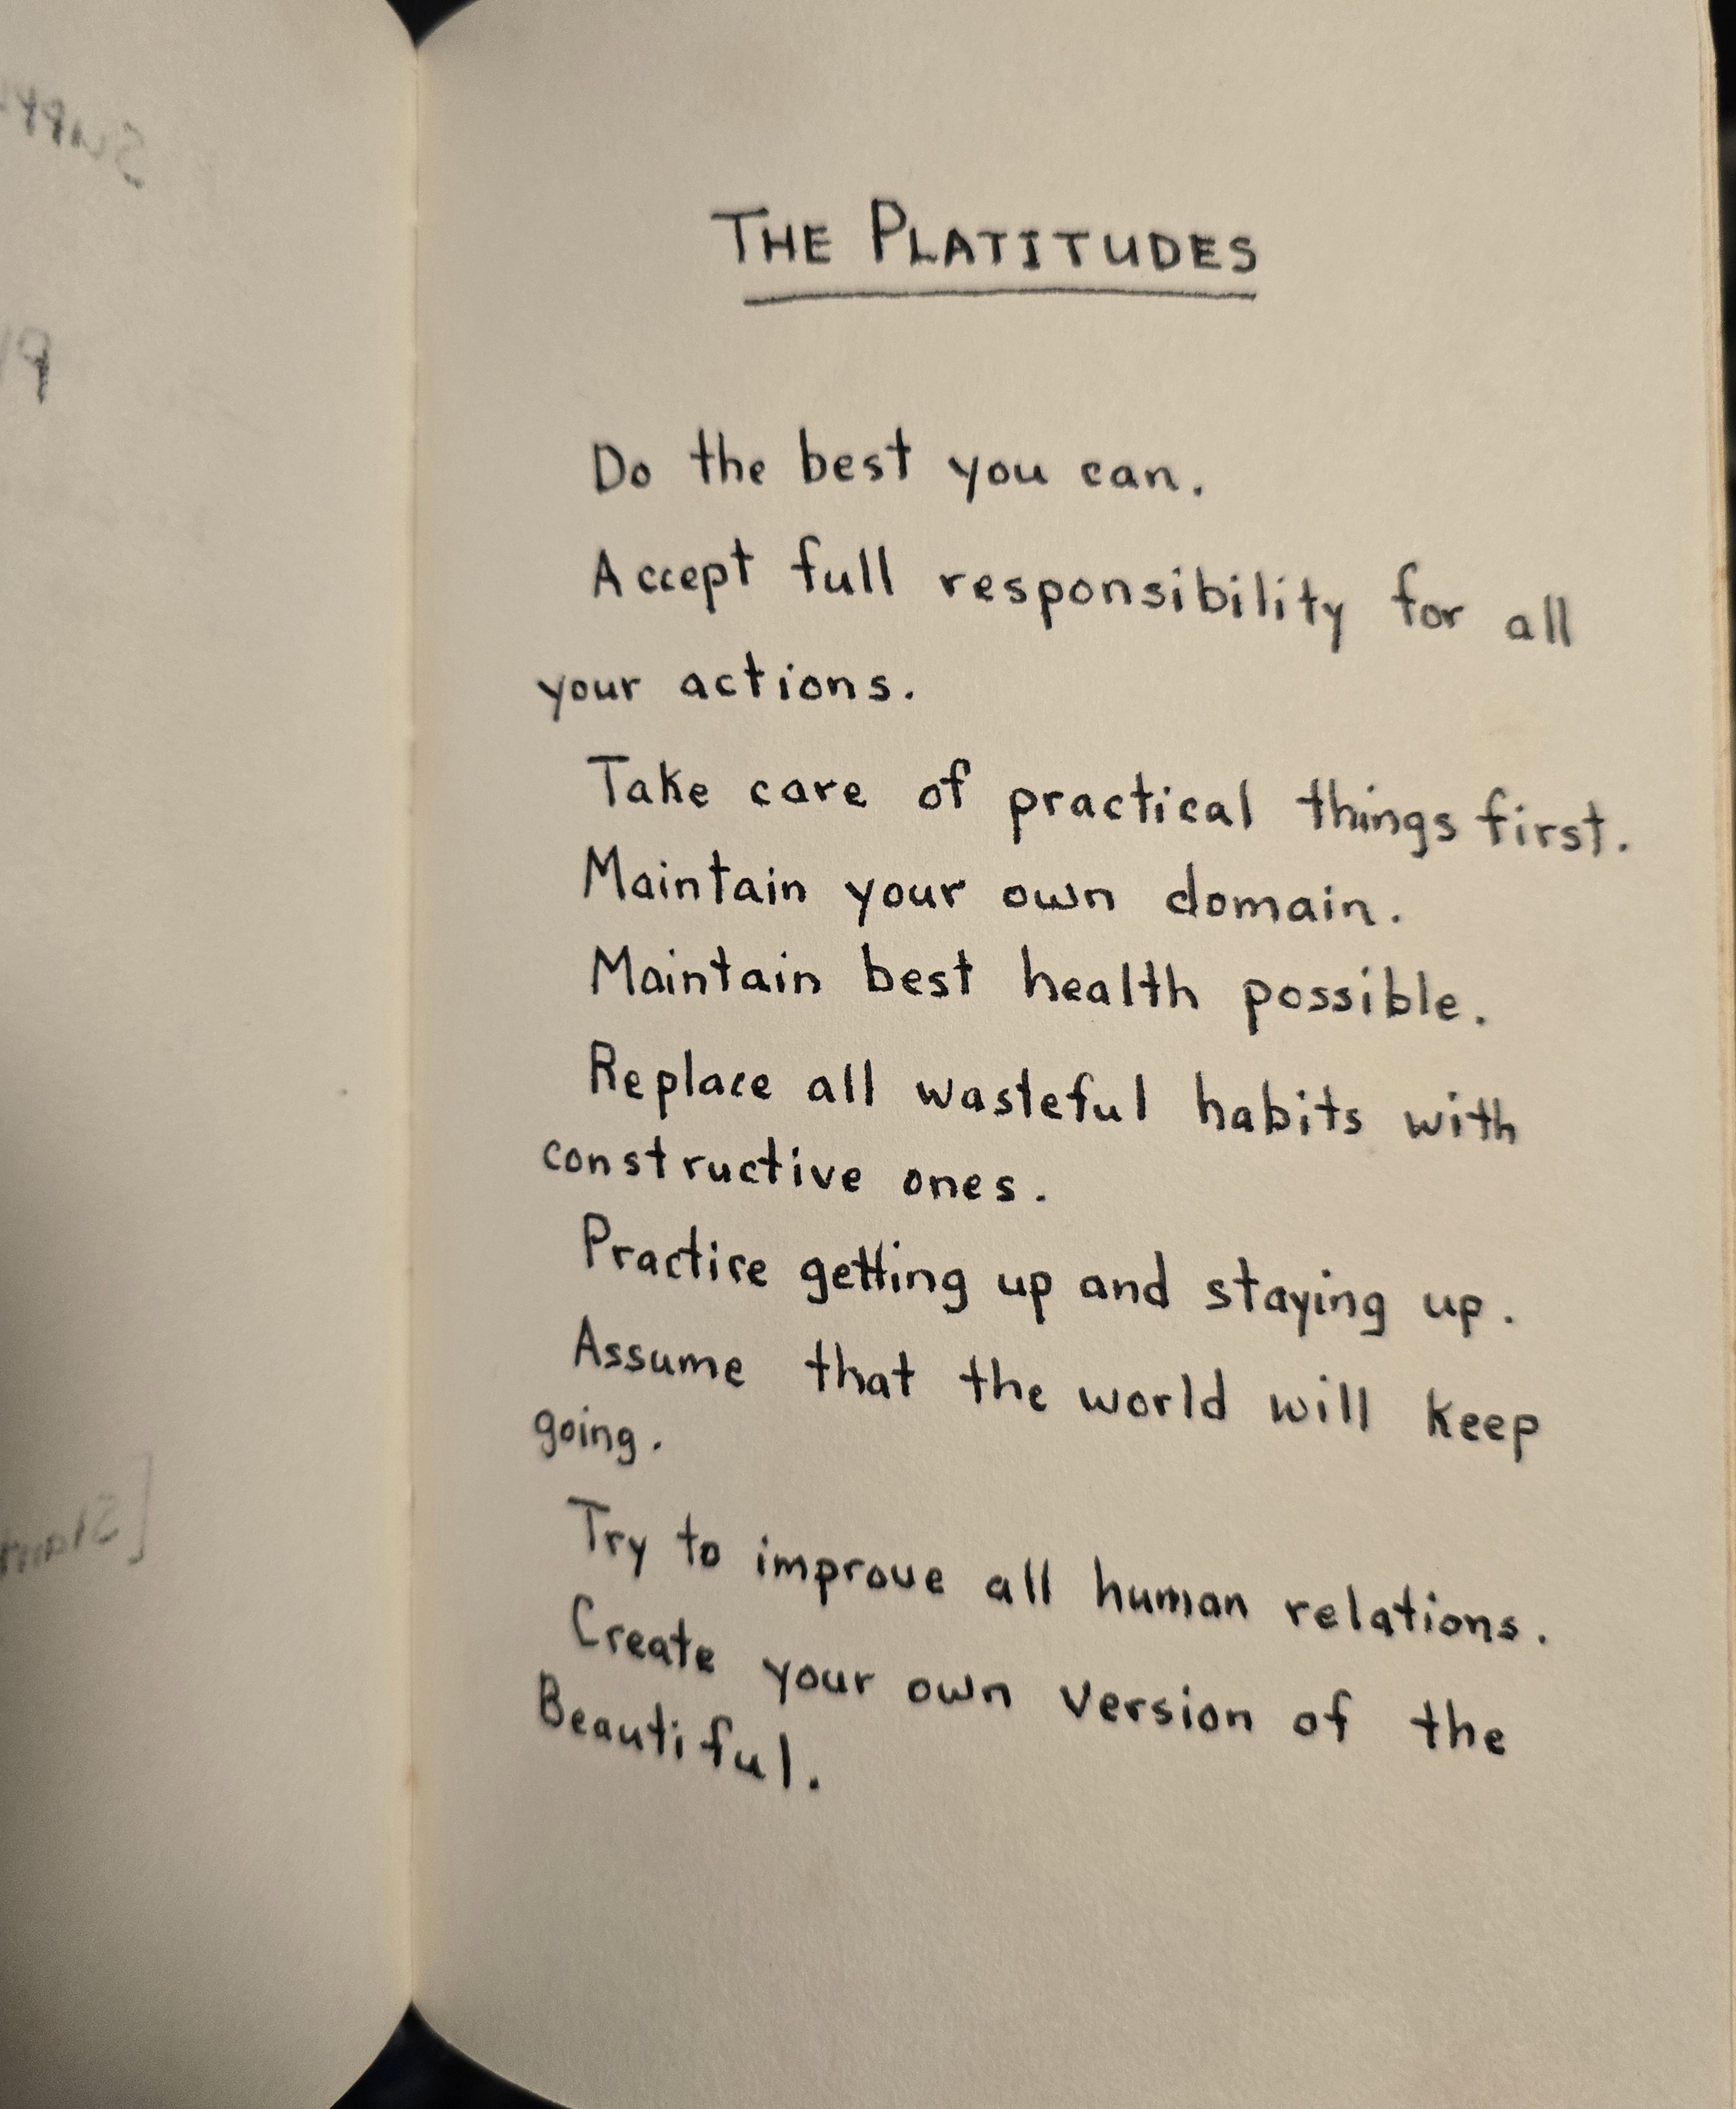 THE PLATITUDES
Do the best you can.
Accept full responsibility for all
your actions.
Take care of practical things first.
Maintain your own domain.
Maintain best health possible.
Replace all wasteful habits with
constructive ones.
Practice getting up and staying up.
Assume that the world will keep
going.
Try to improve all human relations.
Create your own version of the
Beautiful.